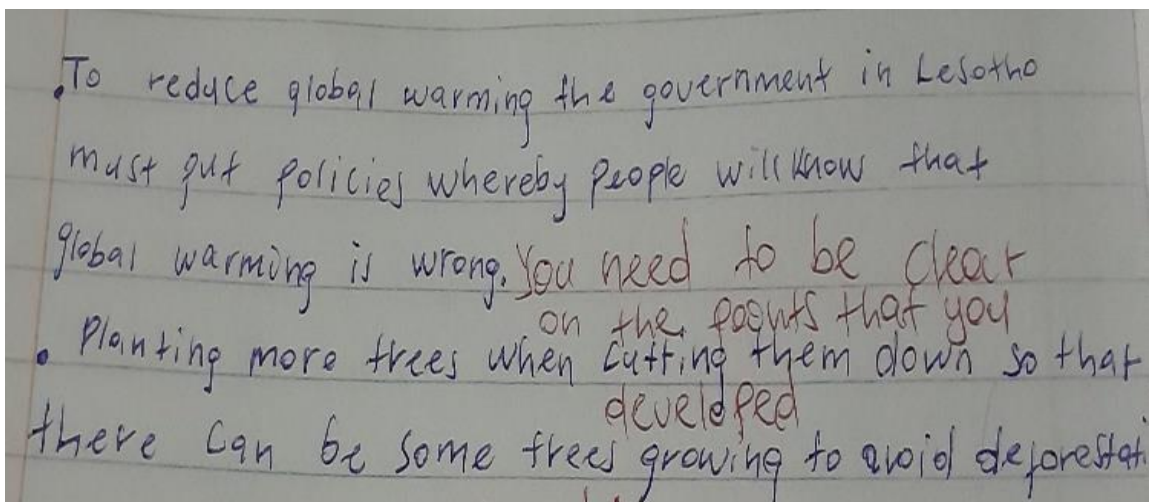 .To reduce global warming the government in Lesotho
must put policies whereby people will know that
global warming is wrong. You need to be clear
on the points that you
• Planting more trees when cutting them down so that
developed
there can be some trees growing to avoid deforestati